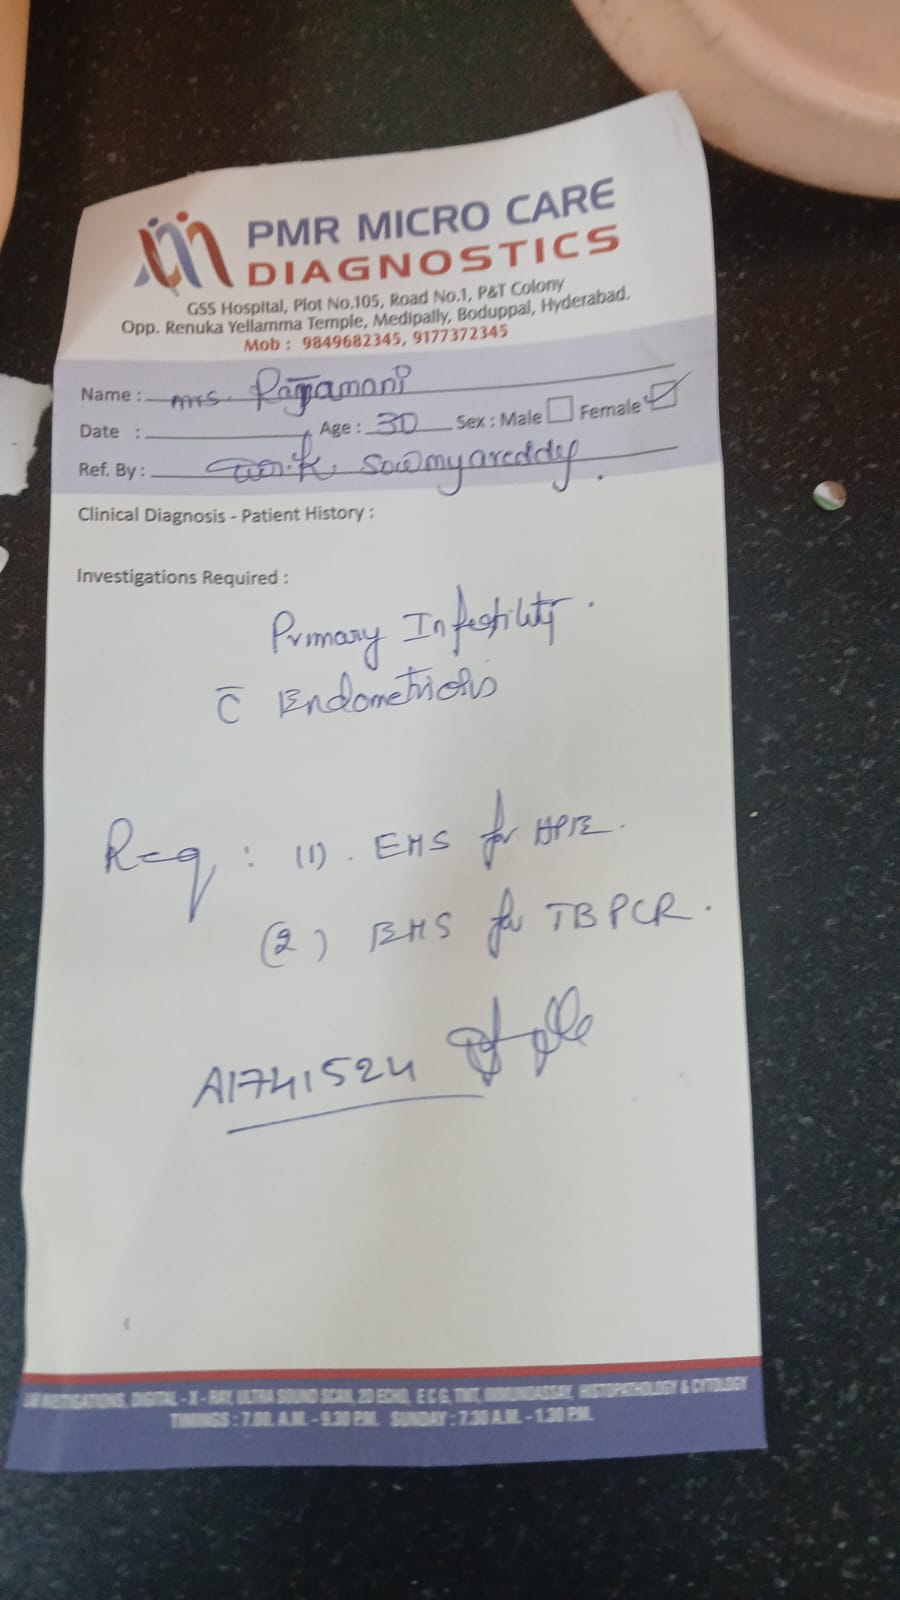 PMR MICRO CARE
DIAGNOSTICS
GSS Hospital, Plot No.105, Road No.1, P&T Colony
Opp. Renuka Yellamma Temple, Medipally, Boduppal, Hyderabad.
Mob : 9849682345, 9177372345
Name : mrs. Rajamani
Date : Age : 30 Sex : Male Female
Ref. By : K. Sowmyareddy.
Clinical Diagnosis - Patient History :
Investigations Required :
Primary Infertility.
c̄ Endometriosis
Req : (1). EMS for HPE.
(2) EMS for TB PCR.
A1741524
INVESTIGATIONS, DIGITAL - X - RAY, ULTRA SOUND SCAN, 2D ECHO, E C G, TMT, IMMUNOASSAY, HISTOPATHOLOGY & CYTOLOGY
TIMINGS : 7.00. A.M. - 9.30 P.M. SUNDAY : 7.30 A.M. - 1.30 P.M.